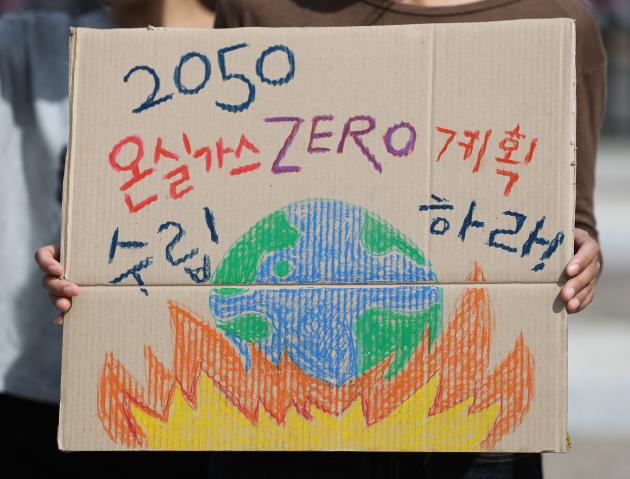 2050
온실가스 ZERO 계획
수립 하라!